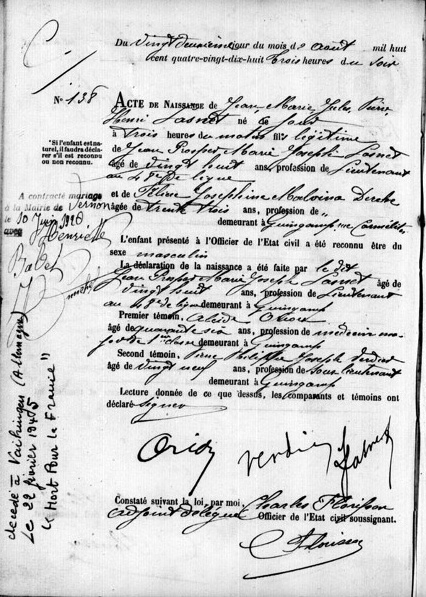 Du Vingt Deuxième jour du mois de Août mil huit
cent quatre-vingt-dix-huit Trois heures du soir
No 138
ACTE DE NAISSANCE de Jean Marie Jules, Pierre
Henri Lasnet né ce jour
à trois heures du matin fils légitime
de Jean Prosper Marie Joseph Lasnet
âgé de Vingt huit ans, profession de Lieutenant
au 48e de ligne
et de Joséphine Malvina
âgée de trente trois ans, profession de
demeurant à Guingamp, rue
L'enfant présenté à l'Officier de l'Etat civil a été reconnu être du
sexe masculin
La déclaration de la naissance a été faite par le dit
Jean Prosper Marie Joseph Lasnet âgé de
Vingt huit ans, profession de Lieutenant
au 48e de ligne demeurant à Guingamp
Premier témoin,
âgé de quarante six ans, profession de médecin ma-
jor de 1e classe demeurant à Guingamp
Second témoin, Pierre Philippe Joseph Verdier
âgé de vingt neuf ans, profession de Sous Lieutenant
demeurant à Guingamp
Lecture donnée de ce que dessus, les comparants et témoins ont
déclaré signer
Verdier
Lasnet
Constaté suivant la loi, par moi, Charles Florisson
adjoint délégué Officier de l'Etat civil soussigné.
Florisson
"Si l'enfant est na-
turel, il faudra décla-
rer s'il est reconnu
ou non reconnu.
A contracté mariage
à la Mairie de Vernon
le 10 Juin 1920
avec Henriette
décédé à Vaihingen (Allemagne)
Le 22 février 1945
"Mort Pour la France"